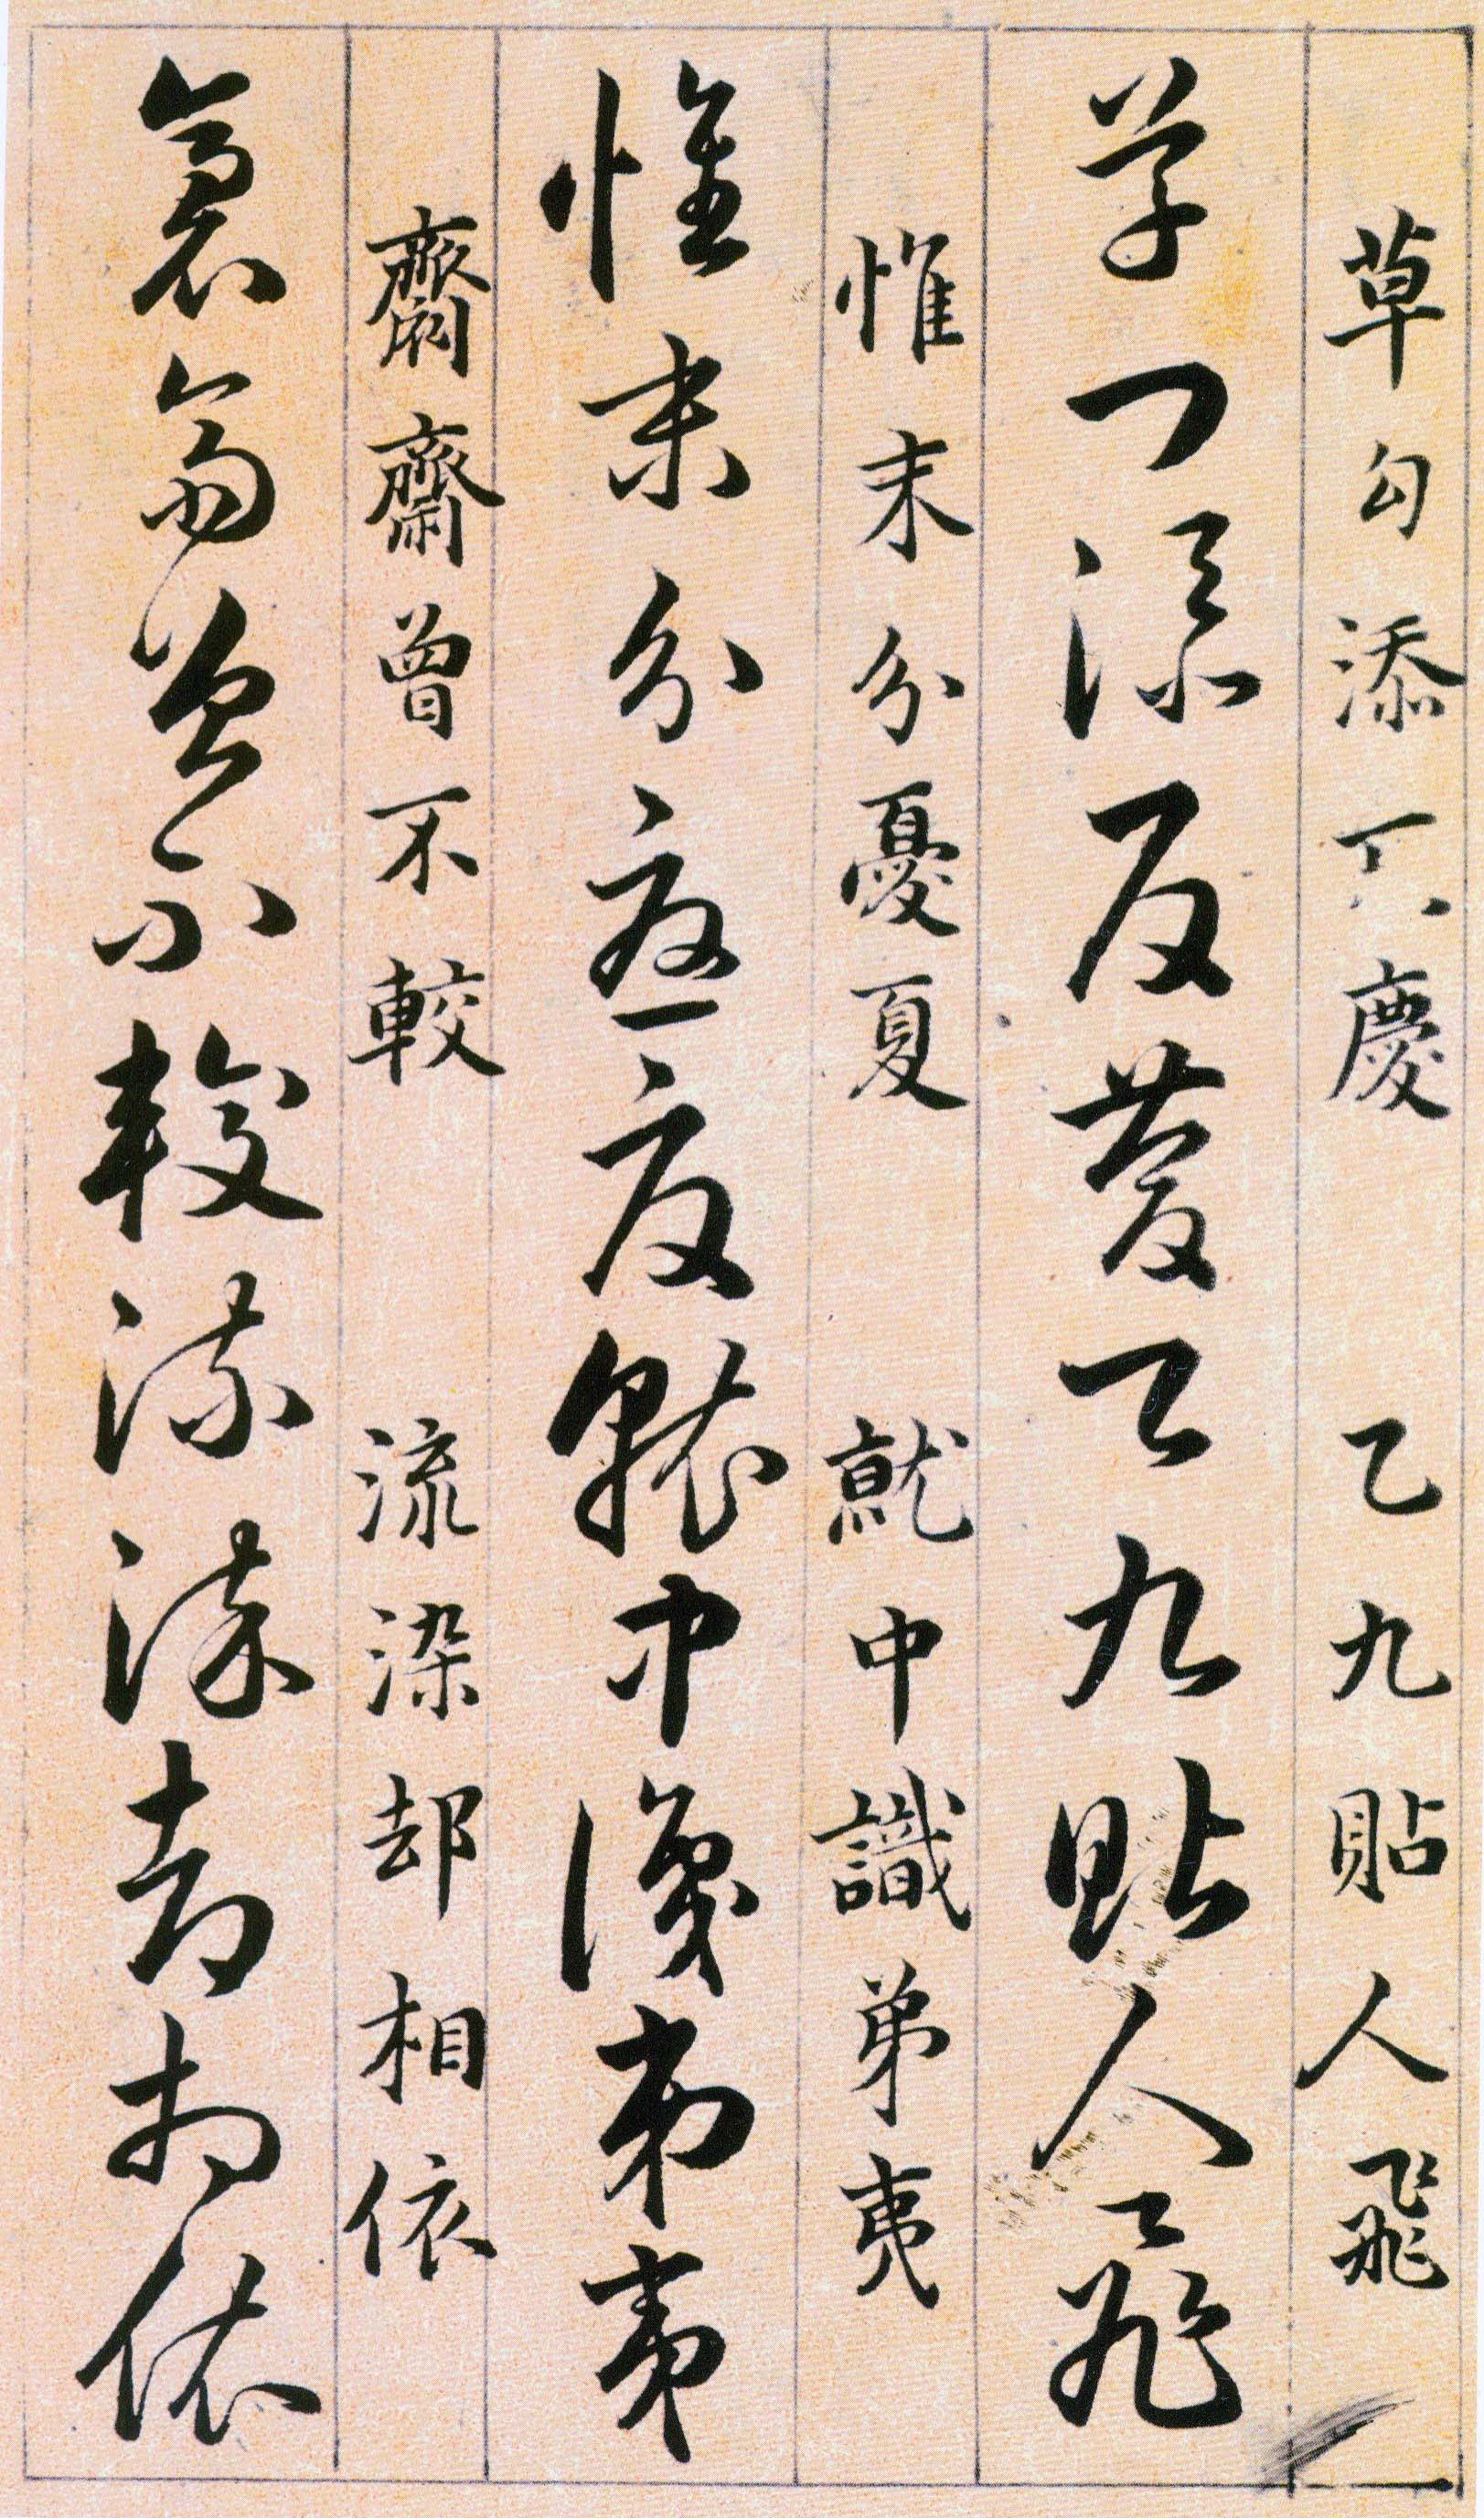 草勾添反慶 乙九貼人飛
草勾添反慶乙九貼人飛
惟末分憂夏 就中識弟夷
惟末分憂夏就中識弟夷
齋齊曾不較 流染却相依
齋齊曾不較流染却相依